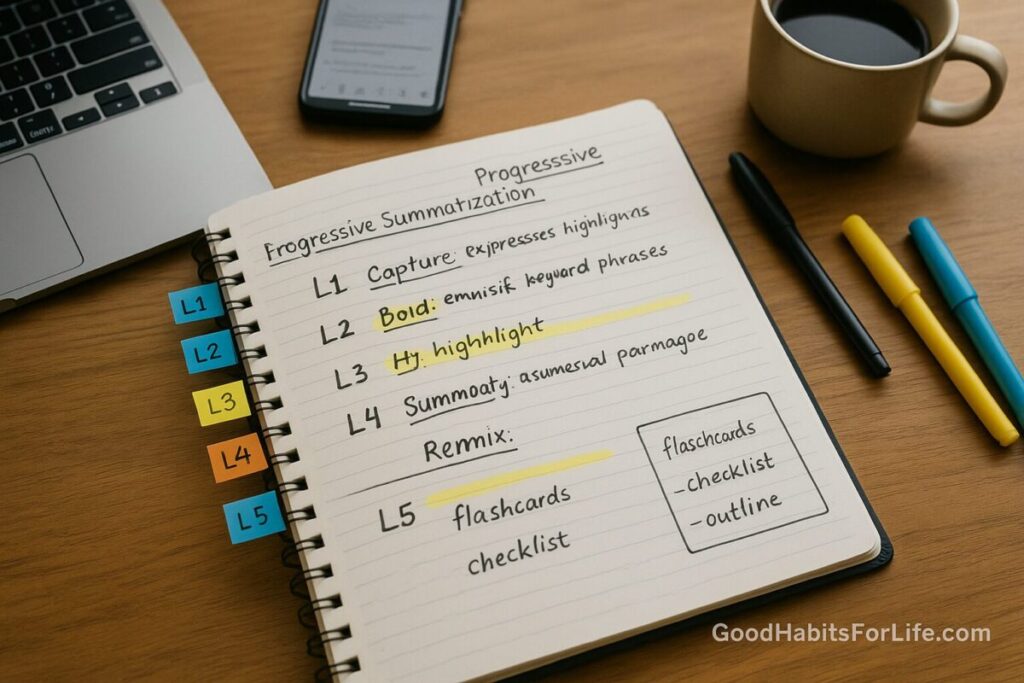 Progresssive
Frogressive Summatization
L1 Capture: exjpresses highlignns
L2 Bold: emnisif keyuard phrases
L3 Hy: highhlight
L4 Summoaty: asumesual parmagoe
Remix:
L5 flashcards
checklist
flaschcards
-checklist
-outline
L1
L2
L3
L4
L5
GoodHabitsForLife.com